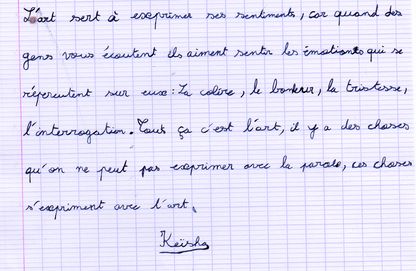 L'art sert à exprimer ses sentiments, car quand des
gens vous écoutent ils aiment sentir les émotions qui se
répercutent sur eux : La colère, le bonheur, la tristesse,
l'interrogation. Tout ça c'est l'art, il y a des choses
qu'on ne peut pas exprimer avec la parole, ces choses
s'expriment avec l'art.
Keïsha